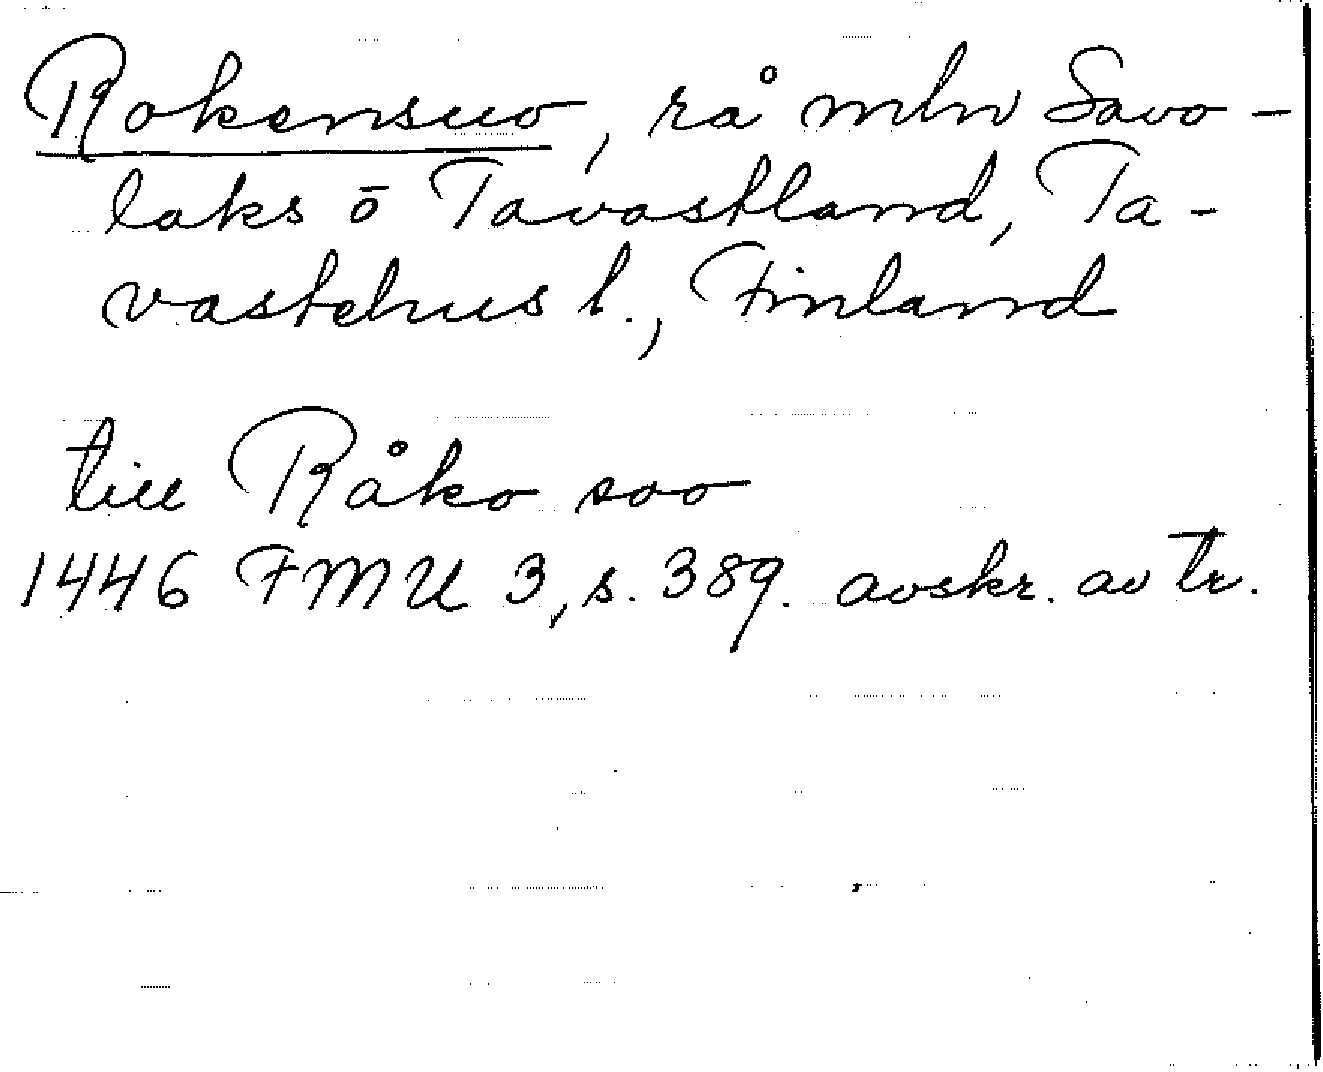 Rokensuo, rå mln Savo-
laks ō Tavastland, Ta-
vastehus l., Finland
till Råko soo
1446 FMU 3, s. 389. avskr. av tr.